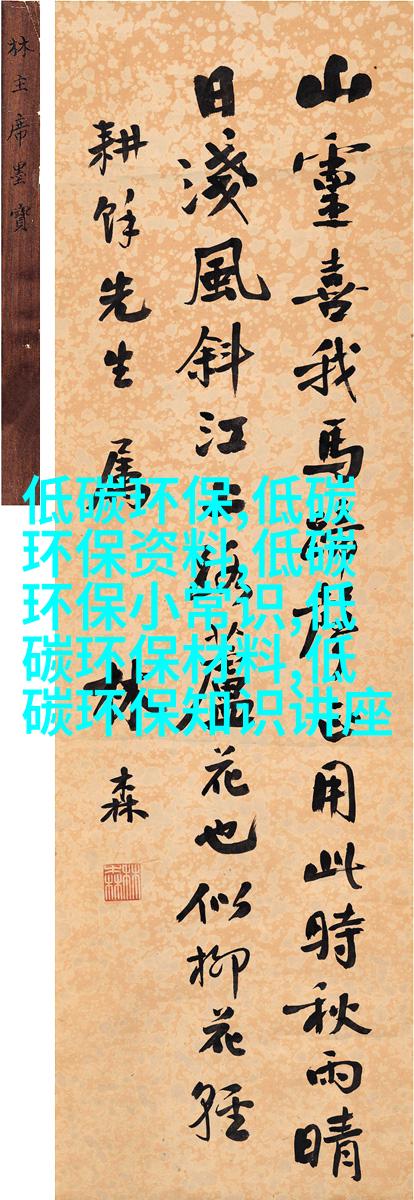 林主席墨寶
山靈喜我馬蹄聲正用此時秋雨晴
日淺風斜江上路蘆花也似柳花輕
耕餘先生 属
林森
低碳环保,低碳
环保资料,低碳
环保小常识,低
碳环保材料,低
碳环保知识讲座